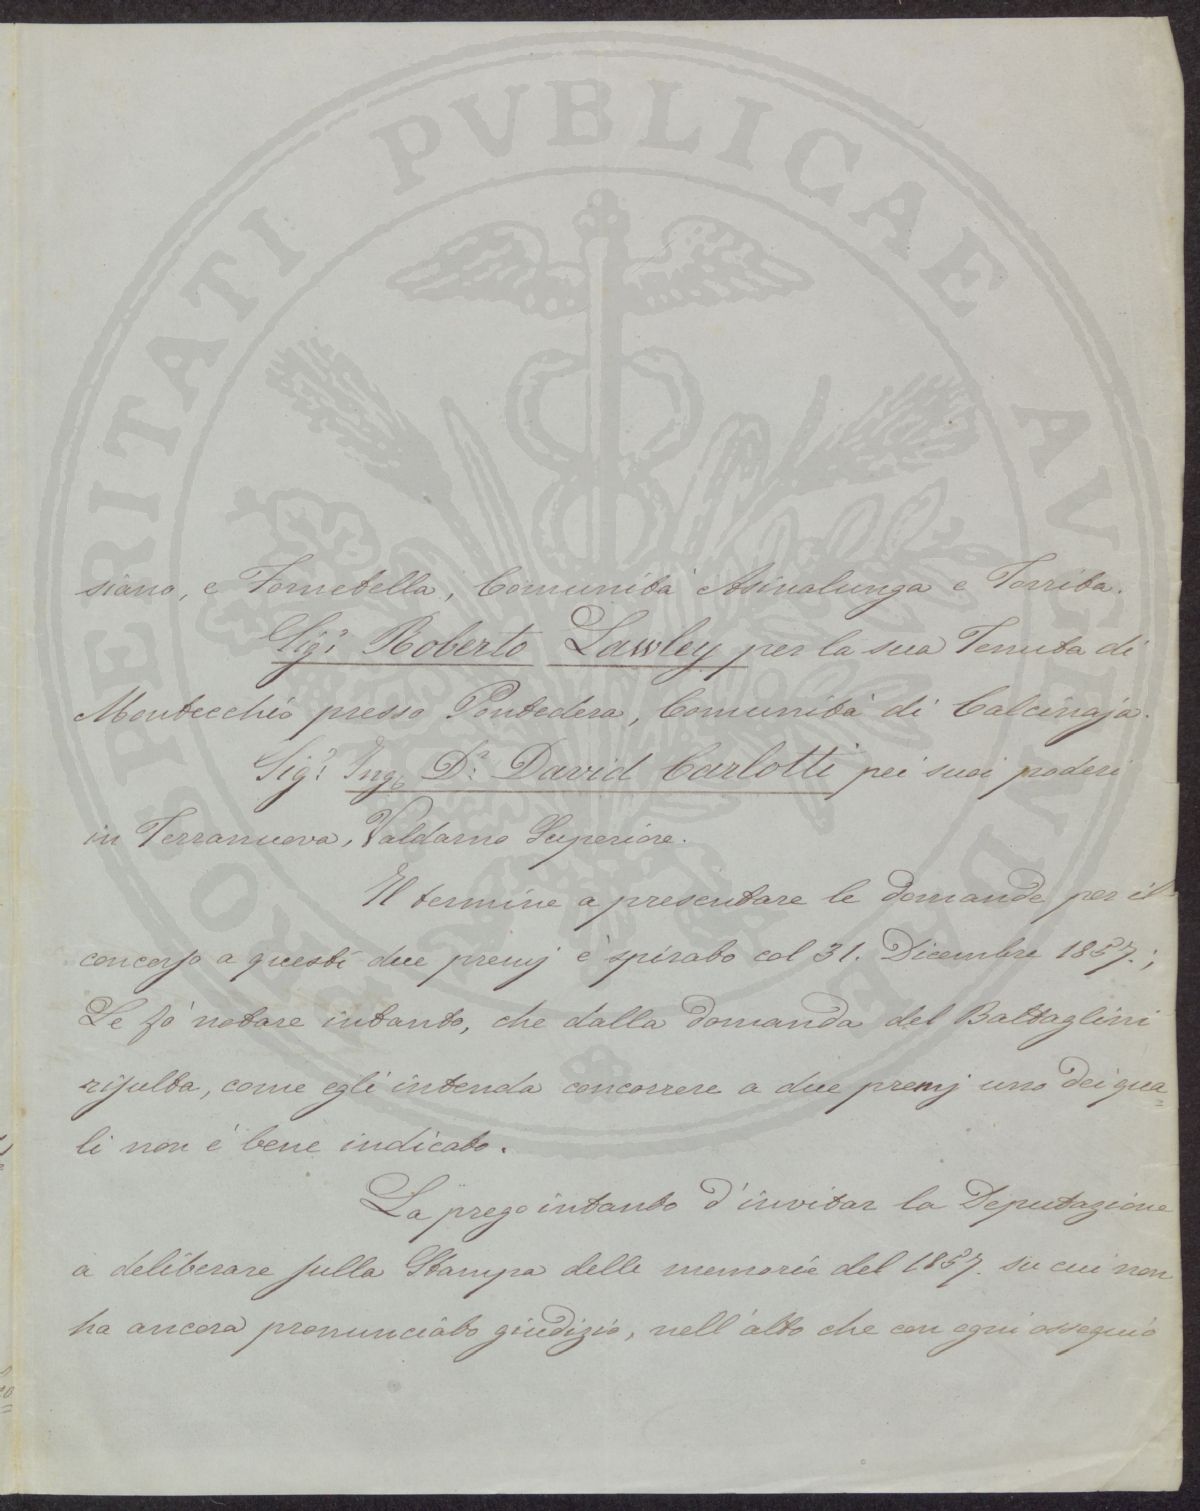 PROSPERITATI PVBLICAE AVGENDAE
siano, e Fometella, Comunità Asinalunga e Torrita.
Sigr. Roberto Lawley per la sua Tenuta di
Montecchio presso Pontedera, Comunità di Calcinaja.
Sigr. Ing. Dr. David Carlotti pei suoi poderi
in Terranuova, Valdarno Superiore.
Il termine a presentare le domande per il
concorso a questi due premj è spirato col 31. Dicembre 1857.;
Le fò notare intanto, che dalla domanda del Battaglini
risulta, come egli intenda concorrere a due premj uno dei qua=
li non è bene indicato.
La prego intanto d'invitar la Deputazione
a deliberare sulla Stampa delle memorie del 1857. su cui non
ha ancora pronunciato giudizio, nell'atto che con ogni ossequio